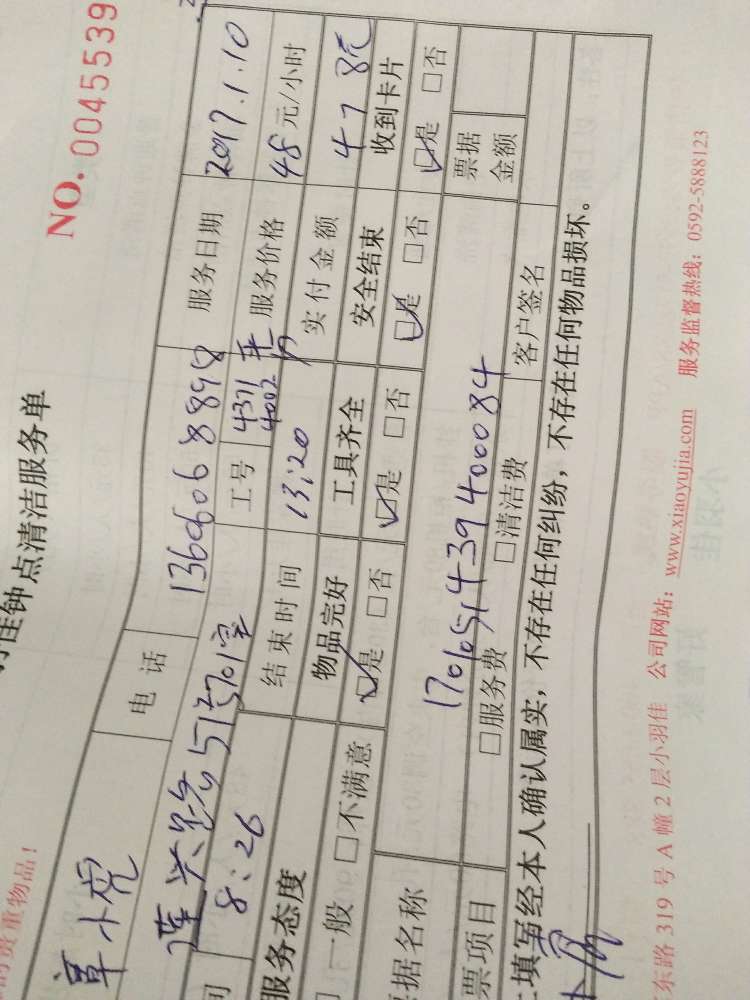 NO. 0045539
佳钟点清洁服务单
的贵重物品!
小 电 话 13606068898 服务日期 2017.1.10
莲兴路51号701室 工号 4371 4002 服务价格 48元/小时
间 8:26 结束时间 13:20 实付金额 478元
服务态度 物品完好 工具齐全 安全结束 收到卡片
一般 □不满意 ☑是 □否 ☑是 □否 ☑是 □否 ☑是 □否
据名称 票据金额
票项目 □服务费 □清洁费 客户签名
填写经本人确认属实,不存在任何纠纷,不存在任何物品损坏。
东路 319 号 A 幢 2 层小羽佳 公司网站: www.xiaoyujia.com 服务监督热线: 0592-5888123